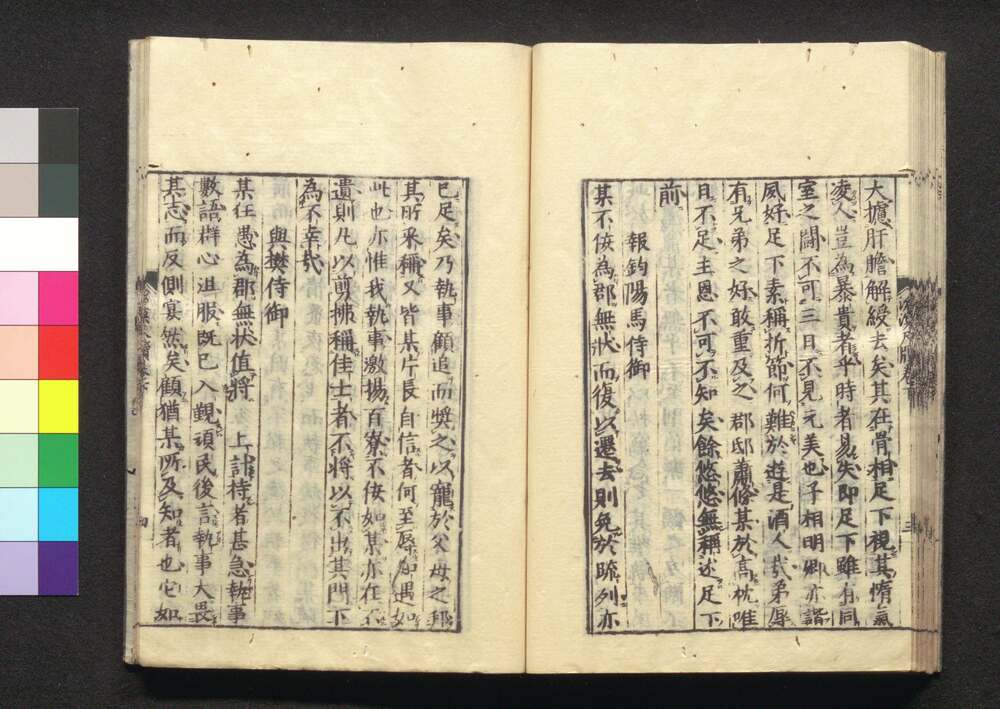 大攄肝膽解綬去矣其在骨相足下視其惰氣
凌人豈為暴貴者乎時者易失即足下雖有同
室之鬪不可三日不見元美也子相明卿亦諧
夙好足下素稱折節何難於遊是酒人哉弟辱
有兄弟之好敢重及之郡邸蕭條某於高枕唯
日不足主恩不可不知矣餘悠悠無稱述足下
前
報鈞陽馬侍御
某不佞為郡無狀而復以遷去則免於疏列亦
已足矣乃執事顧追而獎之以寵於父母之邦
其所采稱又皆某片長自信者何至辱知遇如
此也亦惟我執事激揚百寮不佞如某亦在不
遺則凡以剪拂稱佳士者不將以不出其門下
為不幸哉
與樊侍御
某任愚為郡無狀值將 上計待者甚急執事
數語群心沮服既已入覲頑民後言執事大畏
其志而反側宴然矣顧猶某所及知者也它如